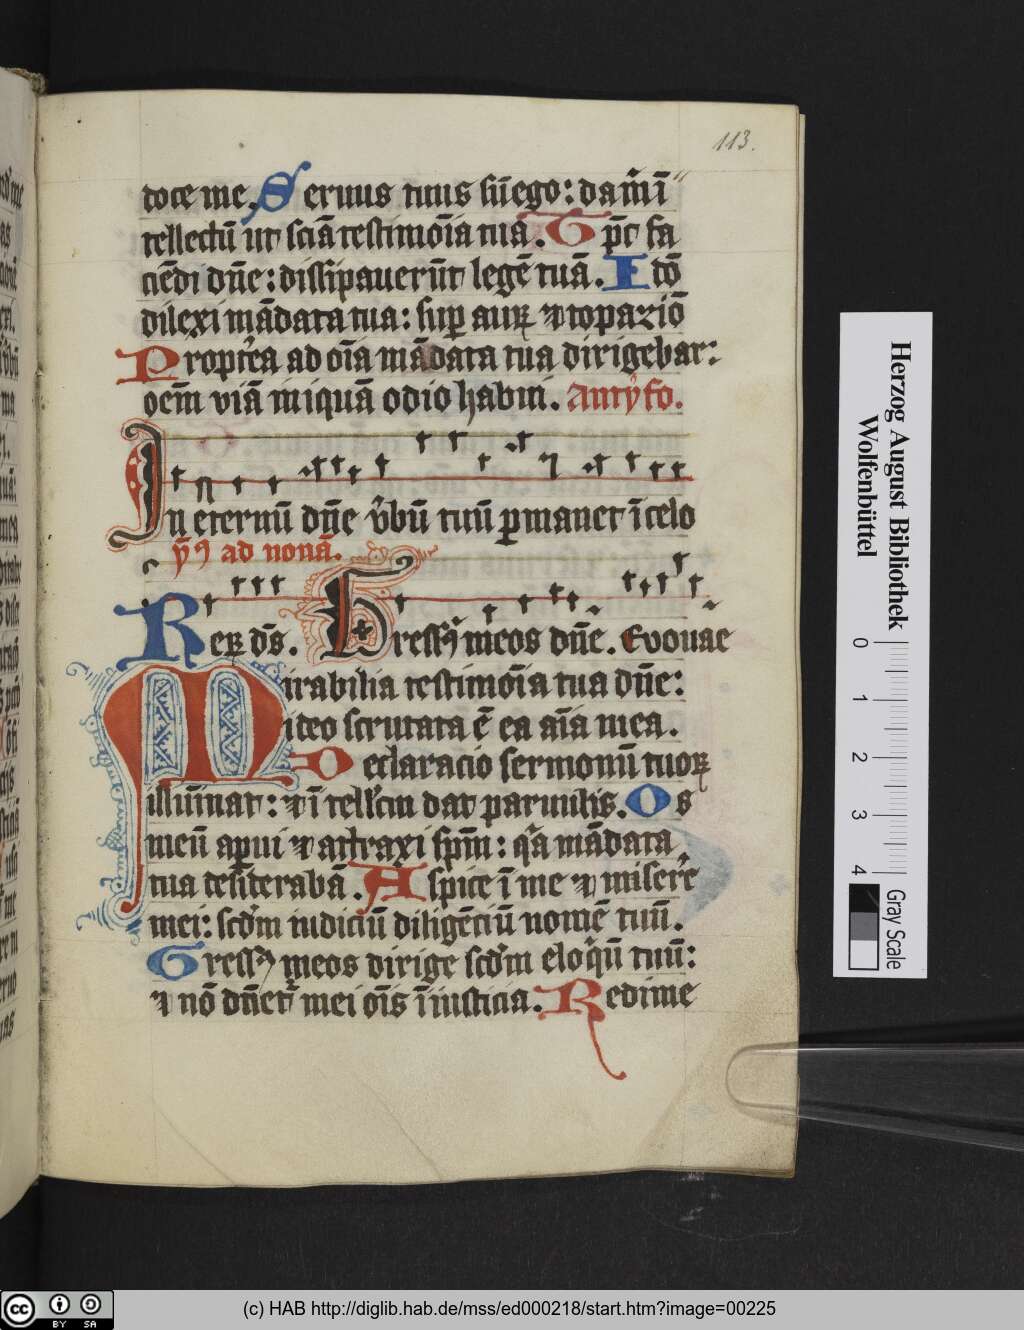 113.
doce me. Seruus tuus sū ego: da m̄ ī
tellectū ut sciā testimōīa tua. Tp̄c fa
ciēdi dn̄e: dissipauerūt legē tuā. Itō
dilexi mādata tua: sup auꝝ ⁊ topaziō
Propt̾ea ad oīa mādata tua dirigebar:
oēm viā iniquā odio habui. Antyfo.
In eternū dn̄e v̾bū tuū ꝑmanet ī celo
ad nonā.
Reꝝ ds̄. Gressꝰ meos dn̄e. Euouae
Mirabilia testimōīa tua dn̄e:
ideo scrutata ē ea aīa mea.
Declaracio sermonū tuoꝝ
illuīat: ⁊ ītellc̄m dat paruulis. Os
meū aꝑui ⁊ attraxi sp̄m: qᷓa mādata
tua desid̾erabā. Aspice ī me ⁊ miser̾e
mei: scd̾m iudiciū diligēciū nomē tuū.
Gressꝰ meos dirige scd̾m eloqͥū tuū:
⁊ nō dn̄etᷣ mei oīs īiusticia. Redime
Herzog August Bibliothek
Wolfenbüttel
0 1 2 3 4
Gray Scale
cc BY SA
(c) HAB http://diglib.hab.de/mss/ed000218/start.htm?image=00225